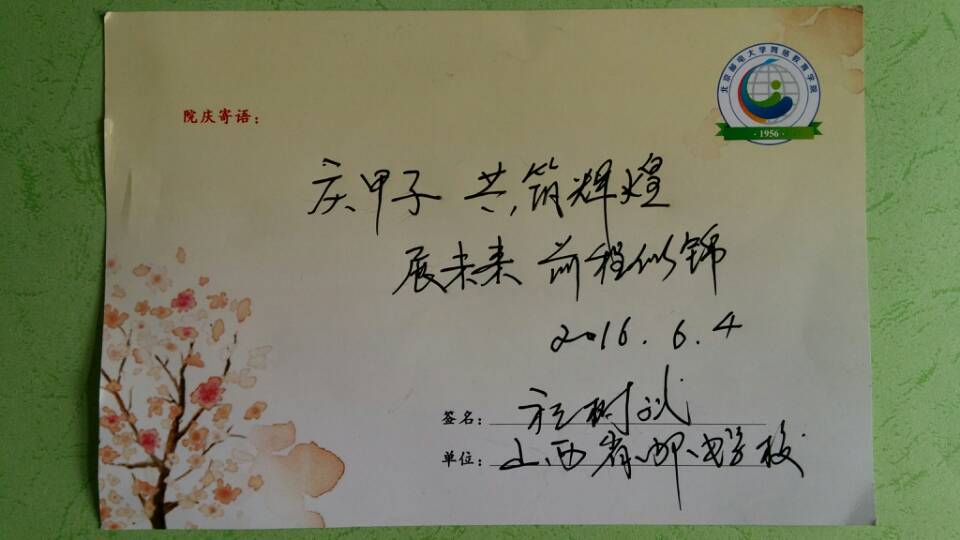 北京邮电大学网络教育学院
· 1956 ·
院庆寄语：
庆甲子 共筑辉煌
展未来 前程似锦
2016.6.4
签名：
单位：山西省邮电学校